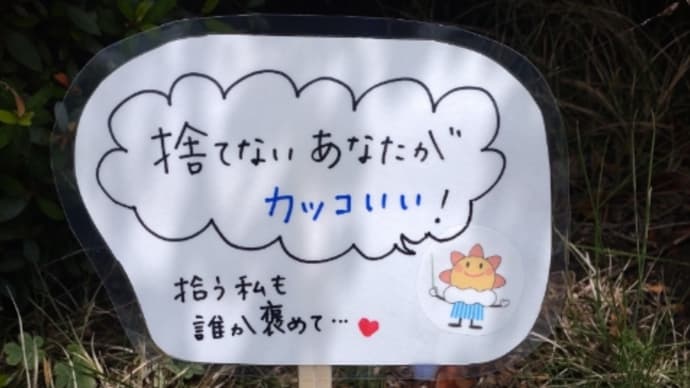 捨てないあなたが
カッコいい!
拾う私も
誰か褒めて…